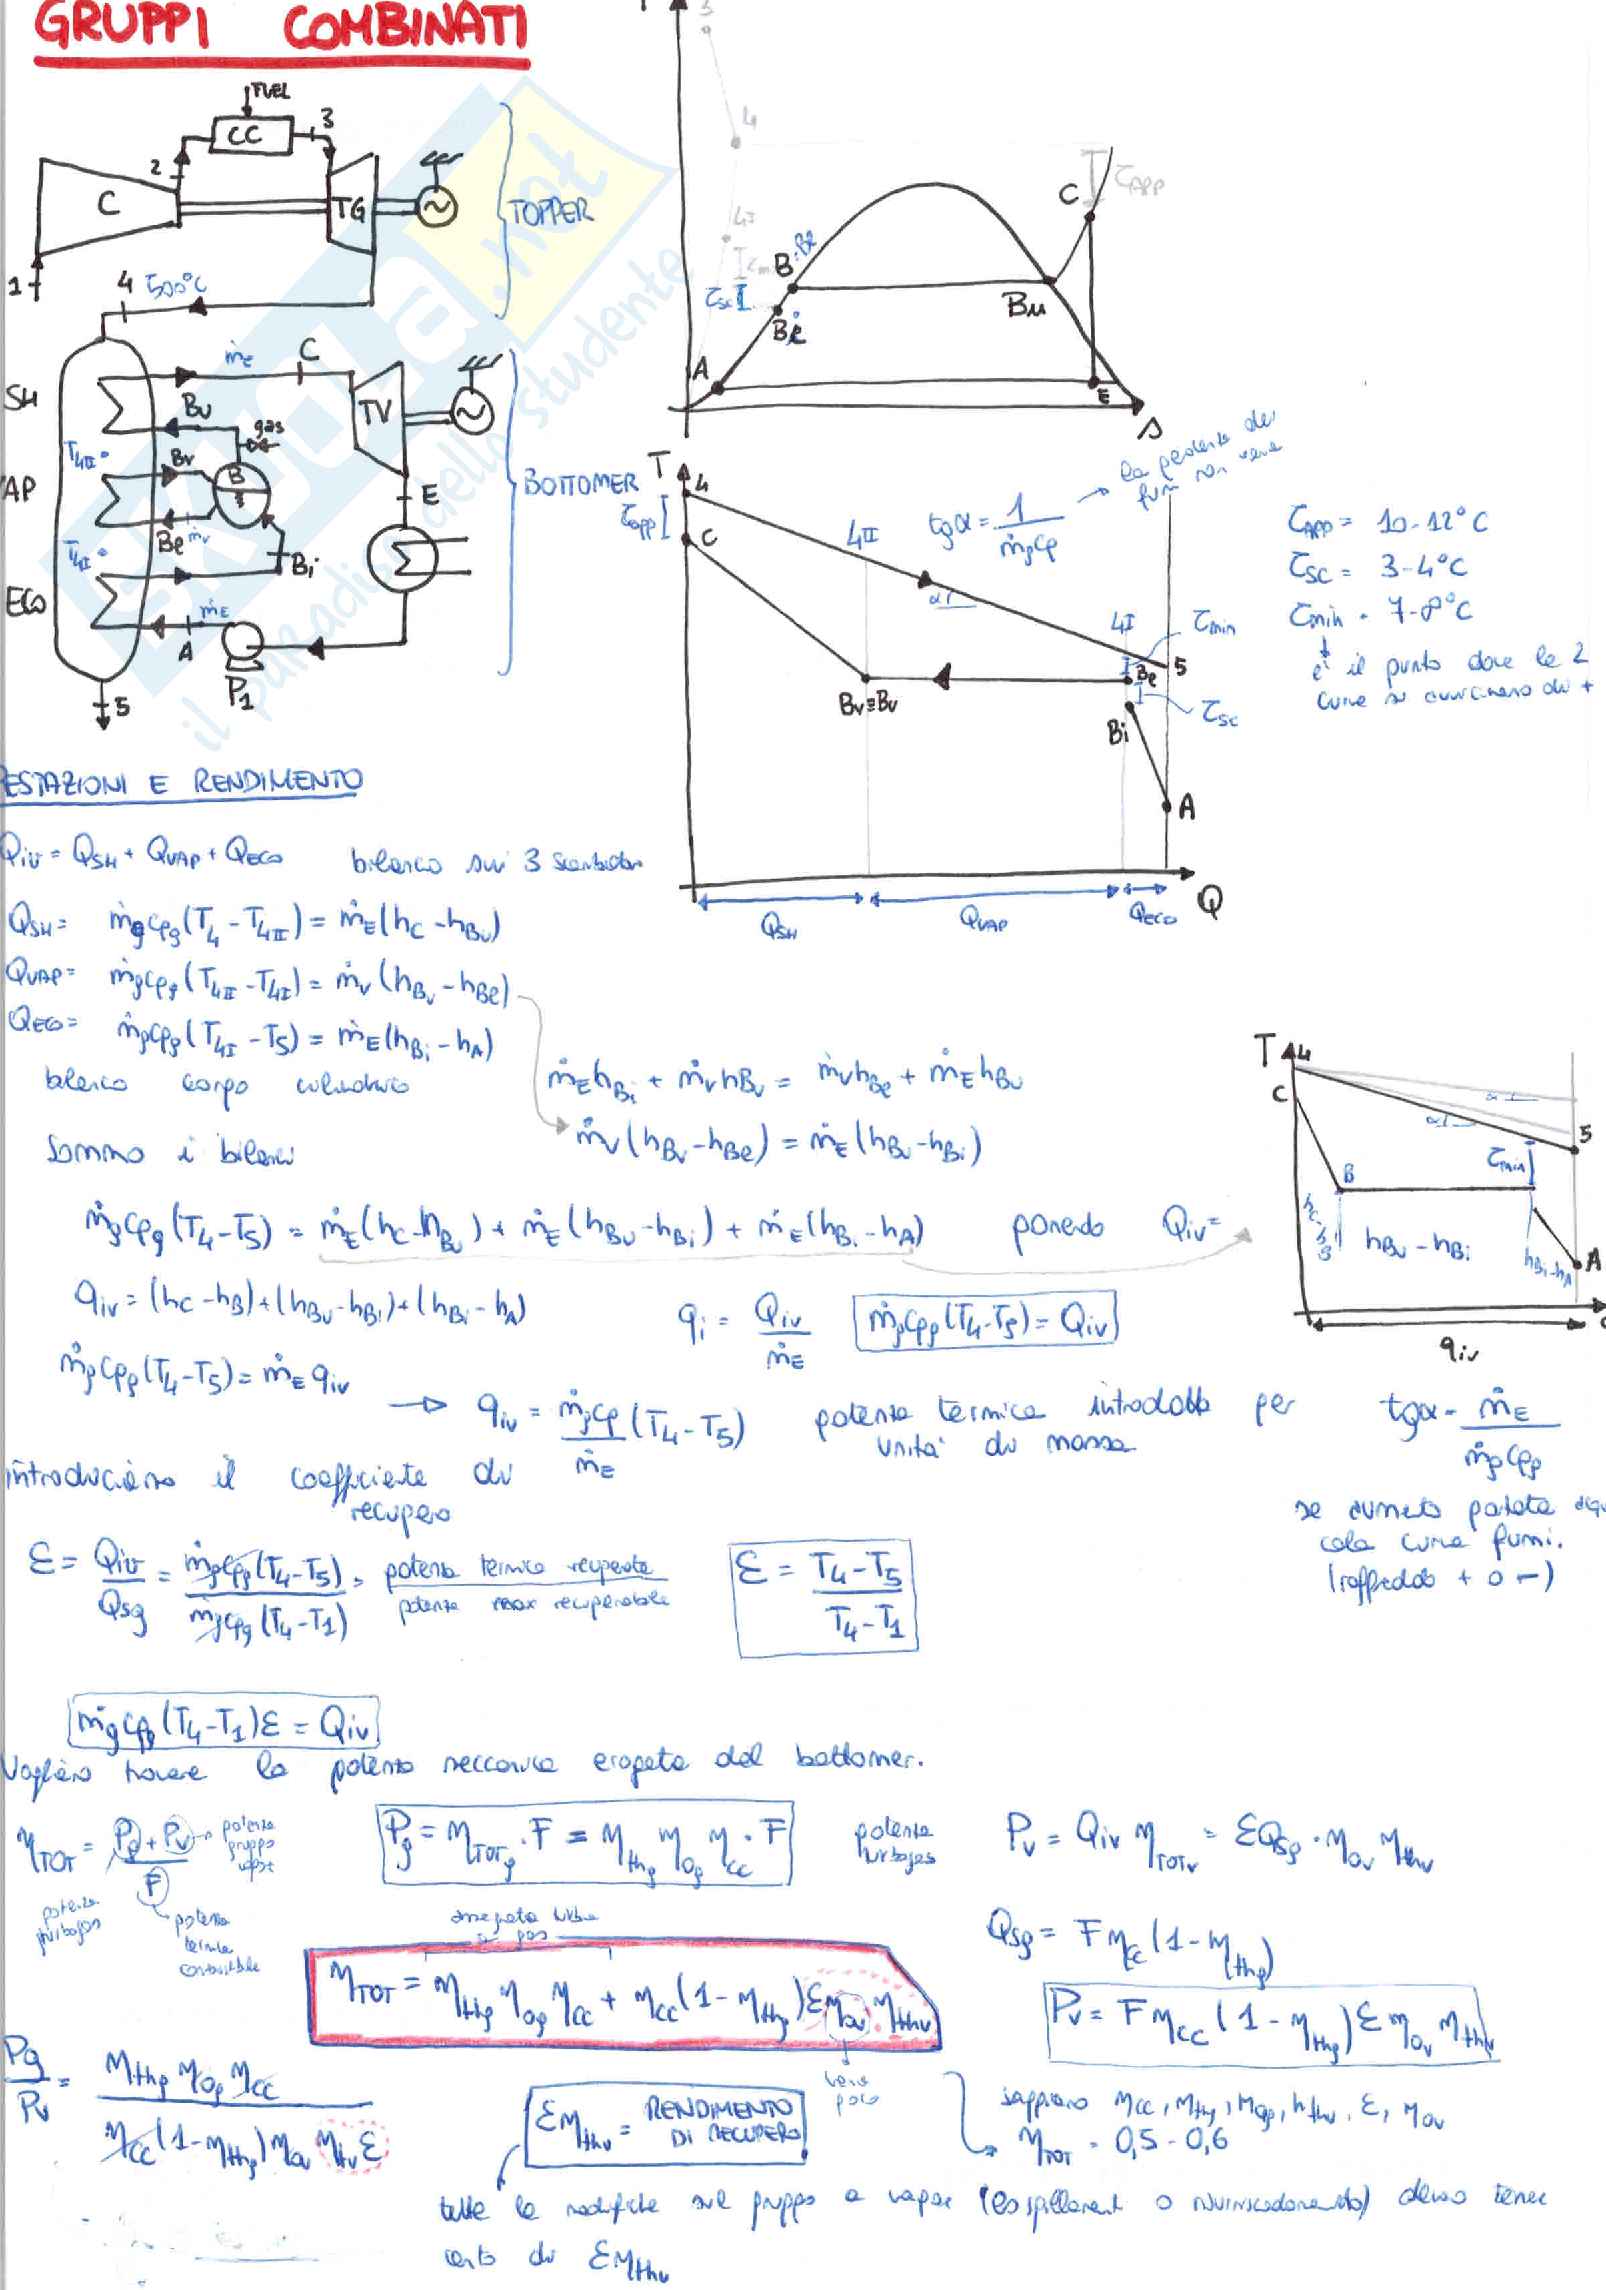 GRUPPI COMBINATI
FUEL
CC
2
3
C
TG
TOPPER
1
4 500°C
SH
ṁE
C
Bv
gas
TV
T4II
Bv
B
E
BOTTOMER
Bl ṁv
T4I
Bi
ECO
ṁE
A
P1
5
SKUOLA.net
il paradiso dello studente
3
4
4I
B=Bl
τsc
Bi
A
Bu
C
τAPP
E
s
T
4
τapp
C
4II
tgα = 1/ṁgcp
la pendenza dei fumi non varia
α
4I
τmin
5
Bl
τsc
Bv≡Bv
Bi
A
QSH
QVAP
QECO
Q
τAPP = 10-12°C
τSC = 3-4°C
τmin = 7-8°C
è il punto dove le 2
curve si avvicinano di +
PRESTAZIONI E RENDIMENTO
Qiv = QSH + QVAP + QECO bilancio sui 3 scambiatori
QSH = ṁgcpg(T4-T4II) = ṁE(hC-hBv)
QVAP = ṁgcpg(T4II-T4I) = ṁv(hBv-hBl)
QECO = ṁgcpg(T4I-T5) = ṁE(hBi-hA)
bilancio corpo cilindrico
ṁEhBi + ṁvhBv = ṁvhBl + ṁEhBv
ṁv(hBv-hBl) = ṁE(hBv-hBi)
Sommo i bilanci
ṁgcpg(T4-T5) = ṁE(hC-hBv) + ṁE(hBv-hBi) + ṁE(hBi-hA) ponendo Qiv=
qiv = (hC-hB)+(hBv-hBi)+(hBi-hA)
qi = Qiv/ṁE
ṁgcpg(T4-T5) = Qiv
ṁgcpg(T4-T5) = ṁE qiv → qiv = ṁgcp/ṁE (T4-T5) potenza termica introdotta per unità di massa
T
4
C
α
α
5
τmin
B
hC-hB
hBv-hBi
hBi-hA
A
qiv
tgα = ṁE/ṁgcpg
se aumento portata
cala curva fumi.
(raffreddo + o -)
introduciamo il coefficiente di recupero
ε = Qiv/Qsg = ṁgcpg(T4-T5)/ṁgcpg(T4-T1) = potenza termica recuperata/potenza max recuperabile
ε = T4-T5/T4-T1
ṁgcpg(T4-T1)ε = Qiv
Vogliamo trovare la potenza meccanica erogata dal bottomer.
ηTOT = Pg+Pv/F
potenza gruppo vapore
potenza turbogas
potenza termica combustibile
Pg = ηTOTg·F = ηthg ηog ηcc·F
potenza turbogas
Pv = Qiv ηTOTv = εQsg·ηov ηthv
Qsg = Fηcc(1-ηthg)
Pv = Fηcc(1-ηthg)ε ηov ηthv
ηTOT = ηthg ηog ηcc + ηcc(1-ηthg)εηov ηthv
varia poco
sappiamo ηcc, ηthg, ηog, ηthv, ε, ηov
ηTOT = 0,5-0,6
Pg/Pv = ηthg ηog ηcc/ηcc(1-ηthg)ηov ηthv ε
εηthv = RENDIMENTO DI RECUPERO
tutte le modifiche sul gruppo a vapore (es spillamenti o risurriscaldamento) devo tenere
conto di εηthv